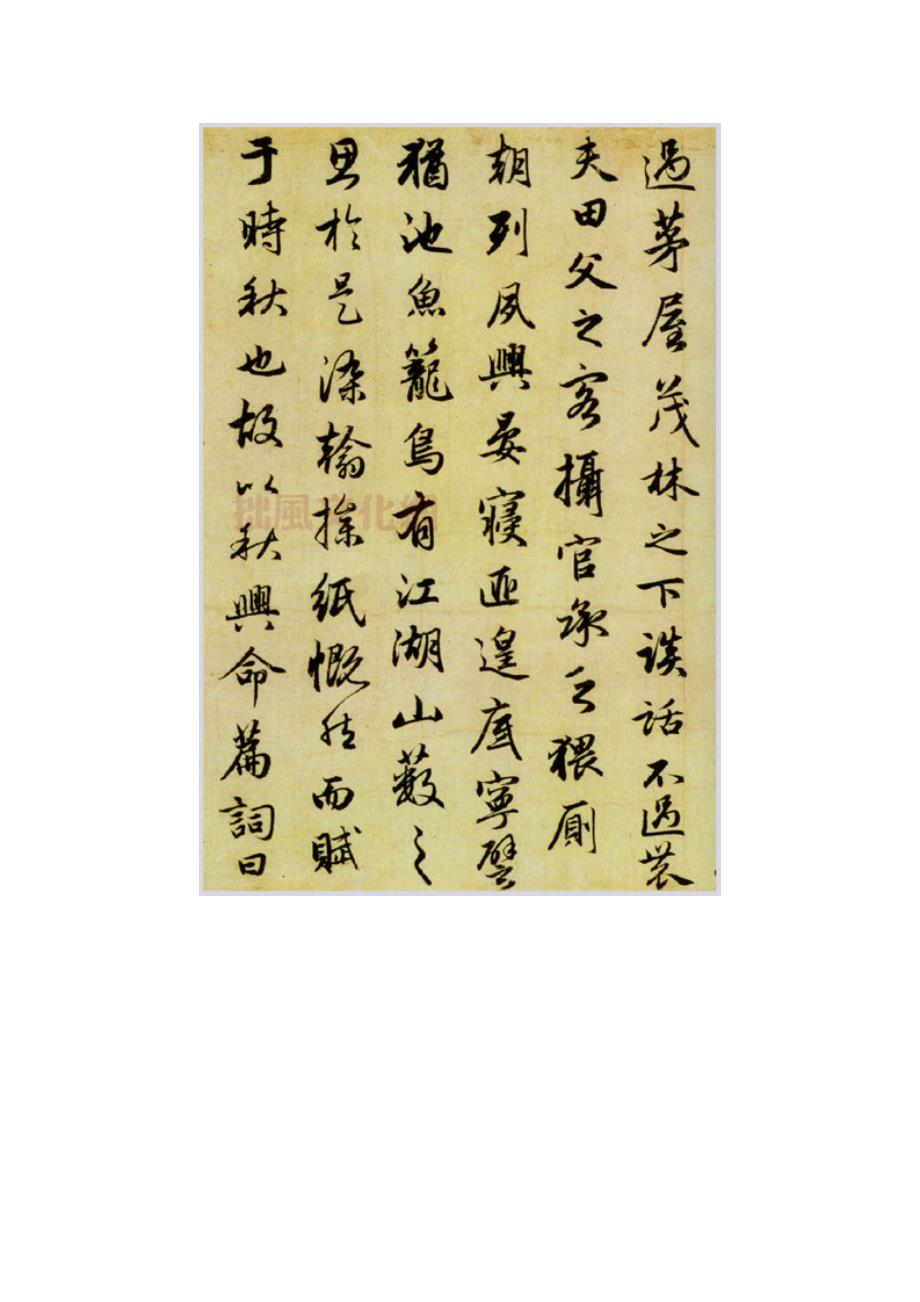 過茅屋茂林之下談話不過農
夫田父之客攝官承乏猥厠
朝列夙興晏寢匪遑底寧譬
猶池魚籠鳥有江湖山藪之
思於是染翰操紙慨然而賦
于時秋也故以秋興命篇詞曰
拙風文化網